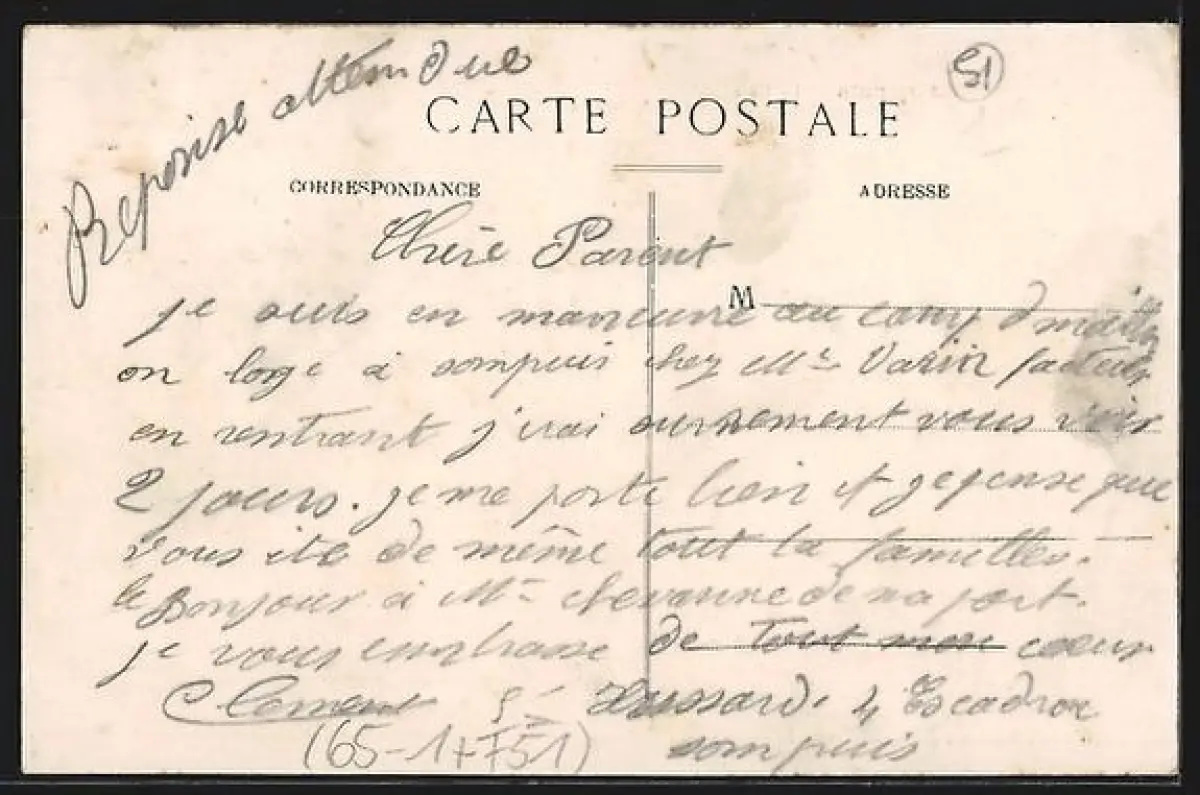 Reponse attendue
51
CARTE POSTALE
CORRESPONDANCE
ADRESSE
Chère Parent
M
je suis en maneuvre au camp d mailly
on loge à sompuis chez Mr Varin facteur
en rentrant j'irai surement vous voir
2 jours. je me porte bien et je pense que
vous ite de même tout la familles.
le Bonjour à Mr chevanne de ma part.
je vous embrasse de tout mon cœur
Clement 5e Hussard. 4 Escadron
sompuis